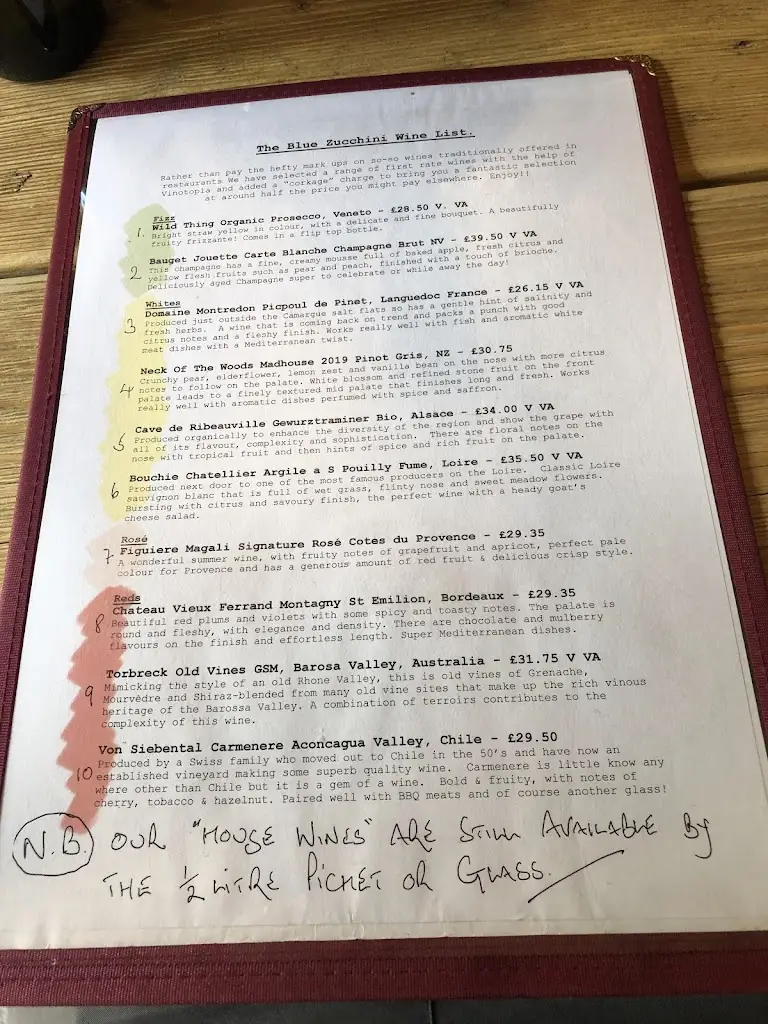 The Blue Zucchini Wine List.
Rather than pay the hefty mark ups on so-so wines traditionally offered in
restaurants We have selected a range of first rate wines with the help of
Vinotopia and added a "corkage" charge to bring you a fantastic selection
at around half the price you might pay elsewhere. Enjoy!!
Fizz
1. Wild Thing Organic Prosecco, Veneto - £28.50 V. VA
Bright straw yellow in colour, with a delicate and fine bouquet. A beautifully
fruity frizzante! Comes in a flip top bottle.
2 Bauget Jouette Carte Blanche Champagne Brut NV - £39.50 V VA
This champagne has a fine, creamy mousse full of baked apple, fresh citrus and
yellow flesh fruits such as pear and peach, finished with a touch of brioche.
Deliciously aged Champagne super to celebrate or while away the day!
Whites
3 Domaine Montredon Picpoul de Pinet, Languedoc France - £26.15 V VA
Produced just outside the Camargue salt flats so has a gentle hint of salinity and
fresh herbs. A wine that is coming back on trend and packs a punch with good
citrus notes and a fleshy finish. Works really well with fish and aromatic white
meat dishes with a Mediterranean twist.
4 Neck Of The Woods Madhouse 2019 Pinot Gris, NZ - £30.75
Crunchy pear, elderflower, lemon zest and vanilla bean on the nose with more citrus
notes to follow on the palate. White blossom and refined stone fruit on the front
palate leads to a finely textured mid palate that finishes long and fresh. Works
really well with aromatic dishes perfumed with spice and saffron.
5 Cave de Ribeauville Gewurztraminer Bio, Alsace - £34.00 V VA
Produced organically to enhance the diversity of the region and show the grape with
all of its flavour, complexity and sophistication. There are floral notes on the
nose with tropical fruit and then hints of spice and rich fruit on the palate.
6 Bouchie Chatellier Argile a S Pouilly Fume, Loire - £35.50 V VA
Produced next door to one of the most famous producers on the Loire. Classic Loire
sauvignon blanc that is full of wet grass, flinty nose and sweet meadow flowers.
Bursting with citrus and savoury finish, the perfect wine with a heady goat's
cheese salad.
Rosé
7 Figuiere Magali Signature Rosé Cotes du Provence - £29.35
A wonderful summer wine, with fruity notes of grapefruit and apricot, perfect pale
colour for Provence and has a generous amount of red fruit & delicious crisp style.
Reds
8 Chateau Vieux Ferrand Montagny St Emilion, Bordeaux - £29.35
Beautiful red plums and violets with some spicy and toasty notes. The palate is
round and fleshy, with elegance and density. There are chocolate and mulberry
flavours on the finish and effortless length. Super Mediterranean dishes.
9 Torbreck Old Vines GSM, Barosa Valley, Australia - £31.75 V VA
Mimicking the style of an old Rhone Valley, this is old vines of Grenache,
Mourvèdre and Shiraz-blended from many old vine sites that make up the rich vinous
heritage of the Barossa Valley. A combination of terroirs contributes to the
complexity of this wine.
10 Von Siebental Carmenere Aconcagua Valley, Chile - £29.50
Produced by a Swiss family who moved out to Chile in the 50's and have now an
established vineyard making some superb quality wine. Carmenere is little know any
where other than Chile but it is a gem of a wine. Bold & fruity, with notes of
cherry, tobacco & hazelnut. Paired well with BBQ meats and of course another glass!
N.B. OUR "HOUSE WINES" ARE STILL AVAILABLE BY
THE ½ LITRE PICHET OR GLASS.